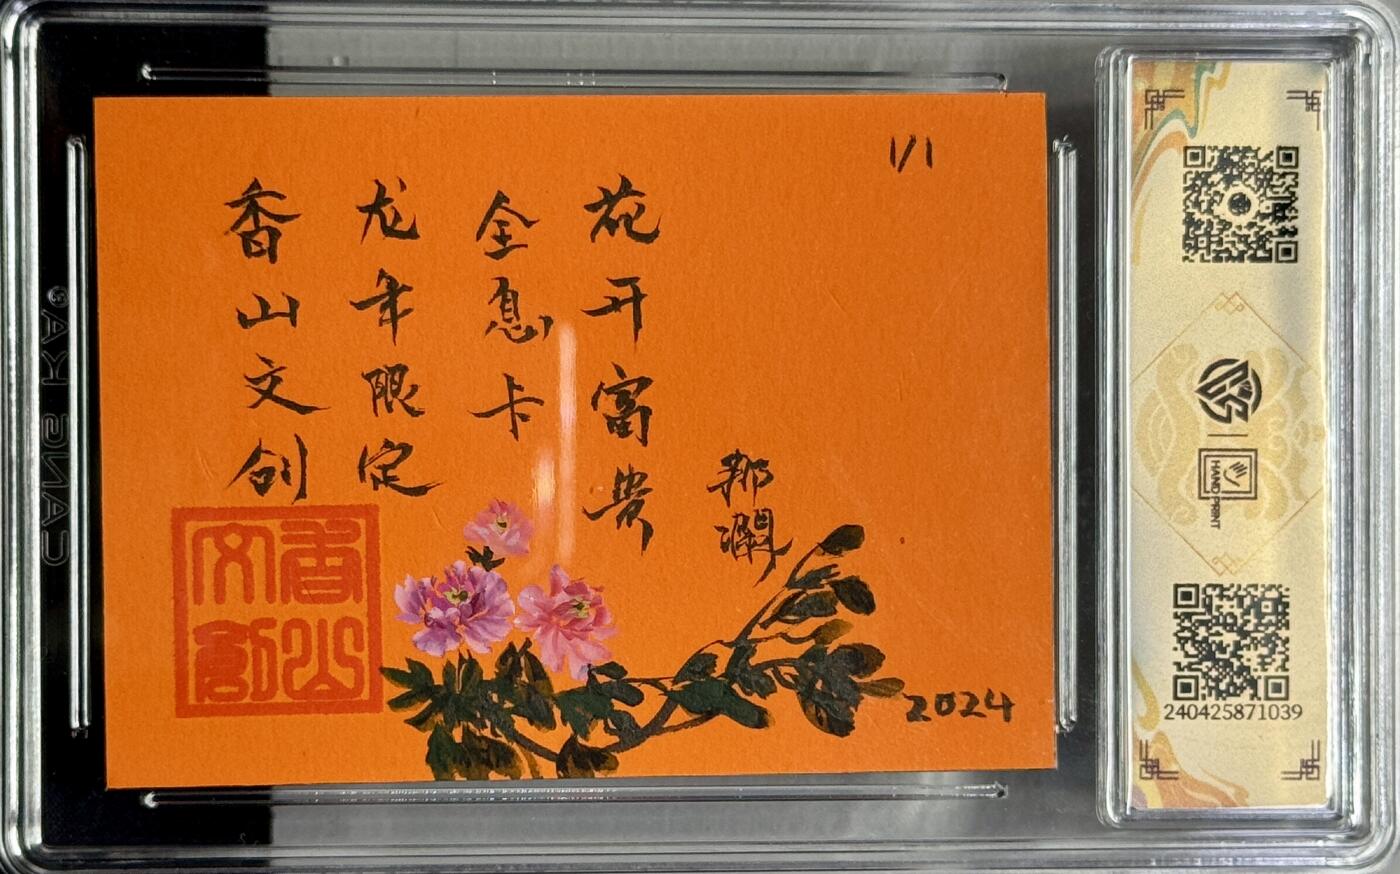 1/1
花开富贵
全息卡
龙年限定
香山文创
那瀾
2024
香山文創
HAND PRINT
240425871039
CANG KA®